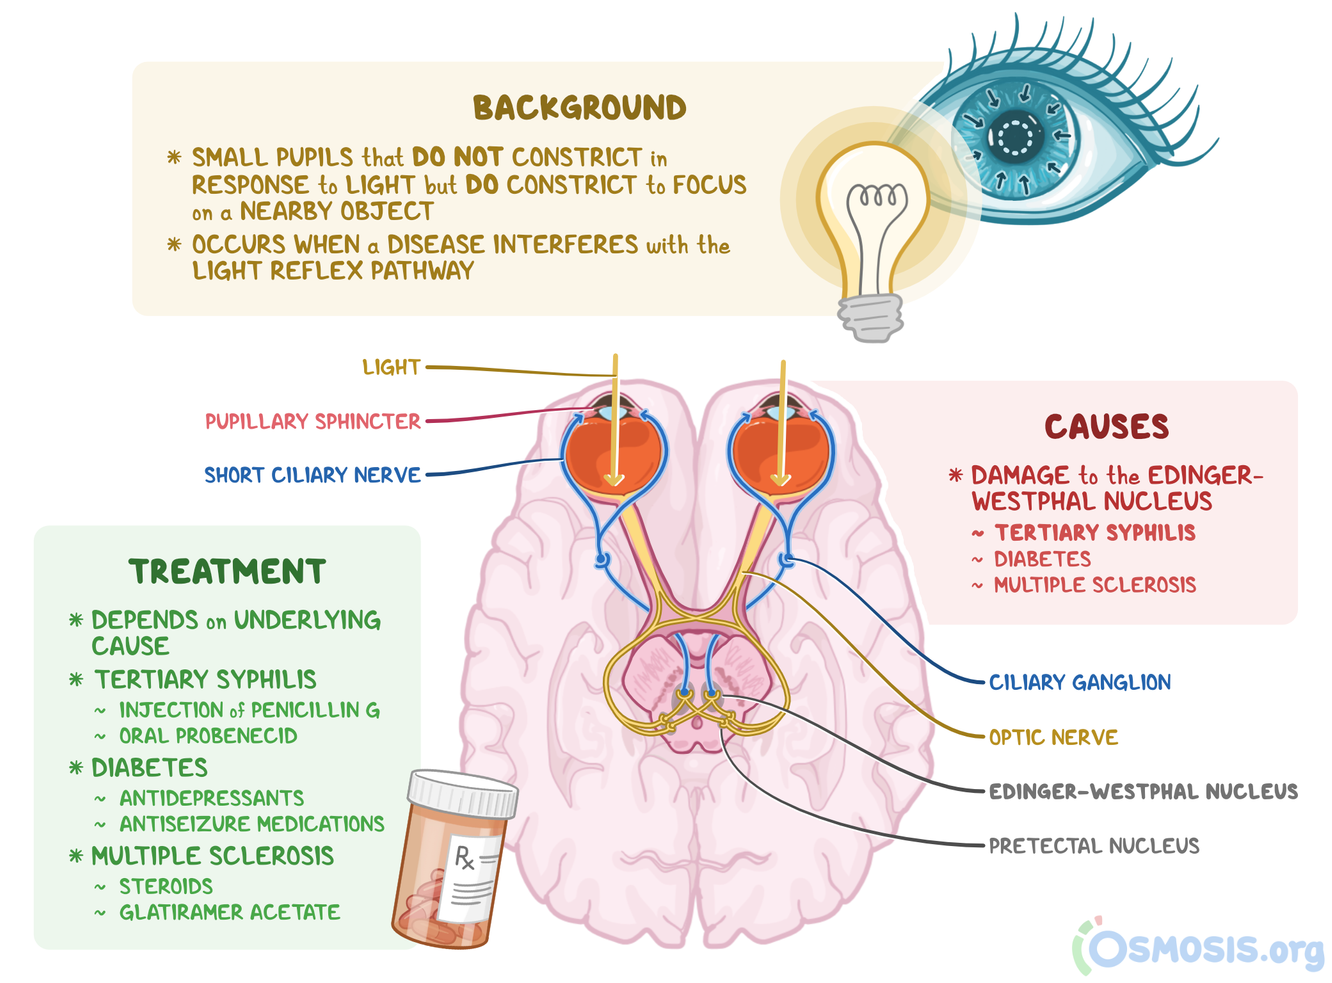 BACKGROUND
* SMALL PUPILS that DO NOT CONSTRICT in
RESPONSE to LIGHT but DO CONSTRICT to FOCUS
on a NEARBY OBJECT
* OCCURS WHEN a DISEASE INTERFERES with the
LIGHT REFLEX PATHWAY
LIGHT
PUPILLARY SPHINCTER
SHORT CILIARY NERVE
CAUSES
* DAMAGE to the EDINGER-
WESTPHAL NUCLEUS
~ TERTIARY SYPHILIS
~ DIABETES
~ MULTIPLE SCLEROSIS
TREATMENT
* DEPENDS on UNDERLYING
CAUSE
* TERTIARY SYPHILIS
~ INJECTION of PENICILLIN G
~ ORAL PROBENECID
* DIABETES
~ ANTIDEPRESSANTS
~ ANTISEIZURE MEDICATIONS
* MULTIPLE SCLEROSIS
~ STEROIDS
~ GLATIRAMER ACETATE
Rx
CILIARY GANGLION
OPTIC NERVE
EDINGER-WESTPHAL NUCLEUS
PRETECTAL NUCLEUS
OSMOSIS.org